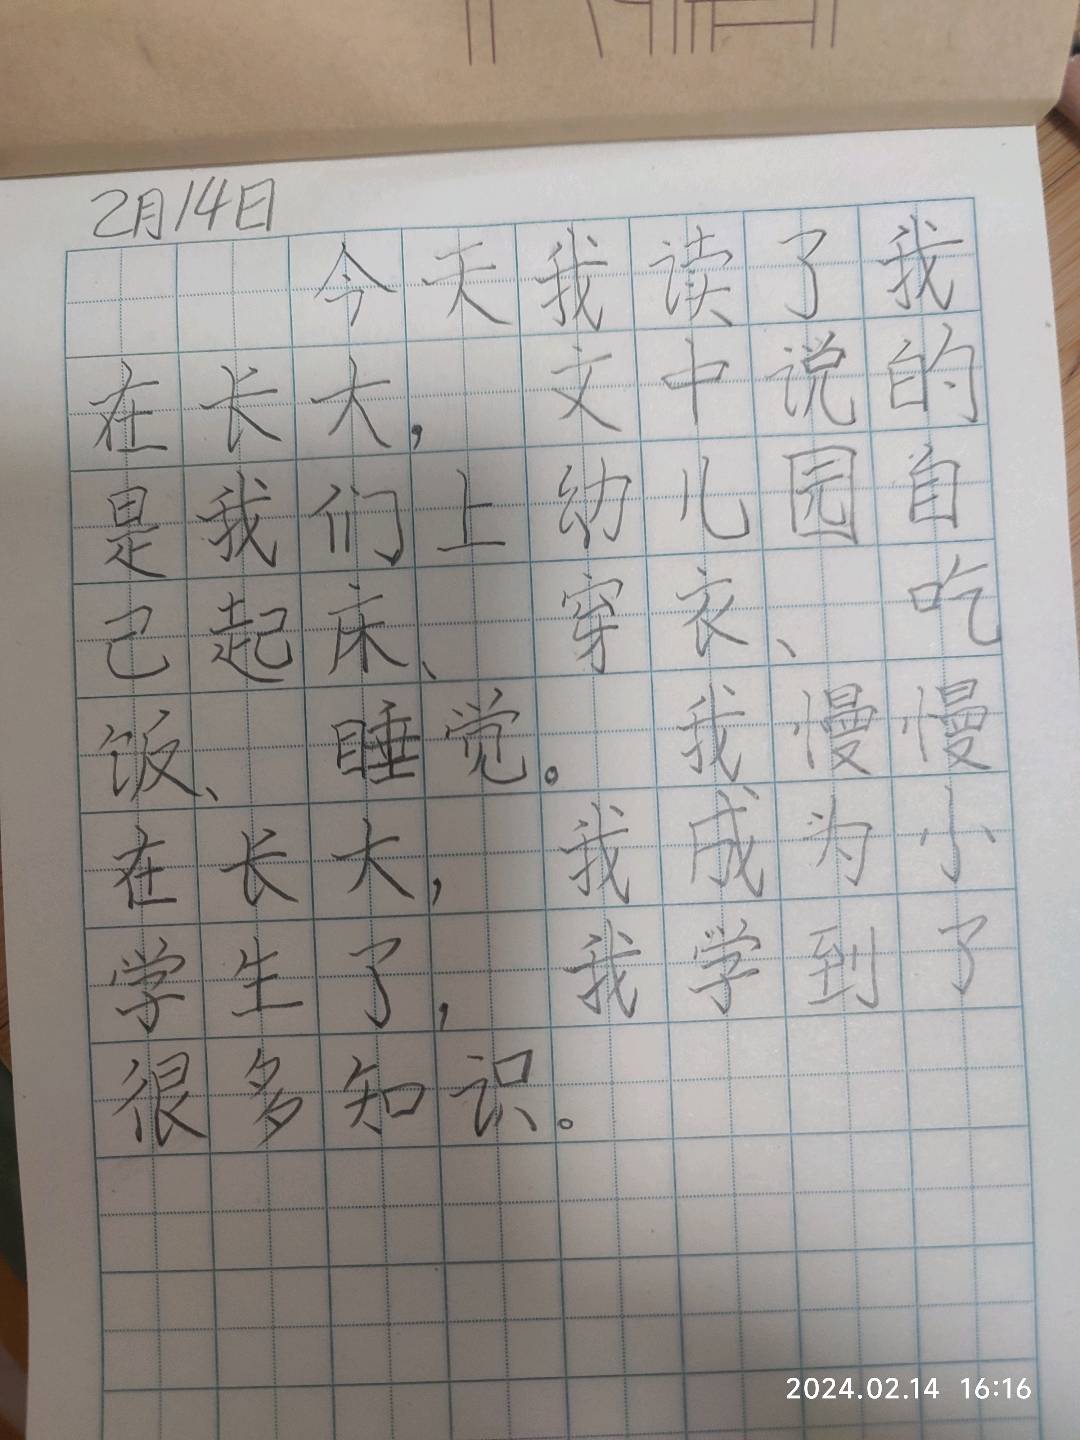 2月14日
今天我读了我
在长大,文中说的
是我们上幼儿园自
己起床、穿衣、吃
饭、睡觉。我慢慢
在长大,我成为小
学生了,我学到了
很多知识。
2024.02.14 16:16